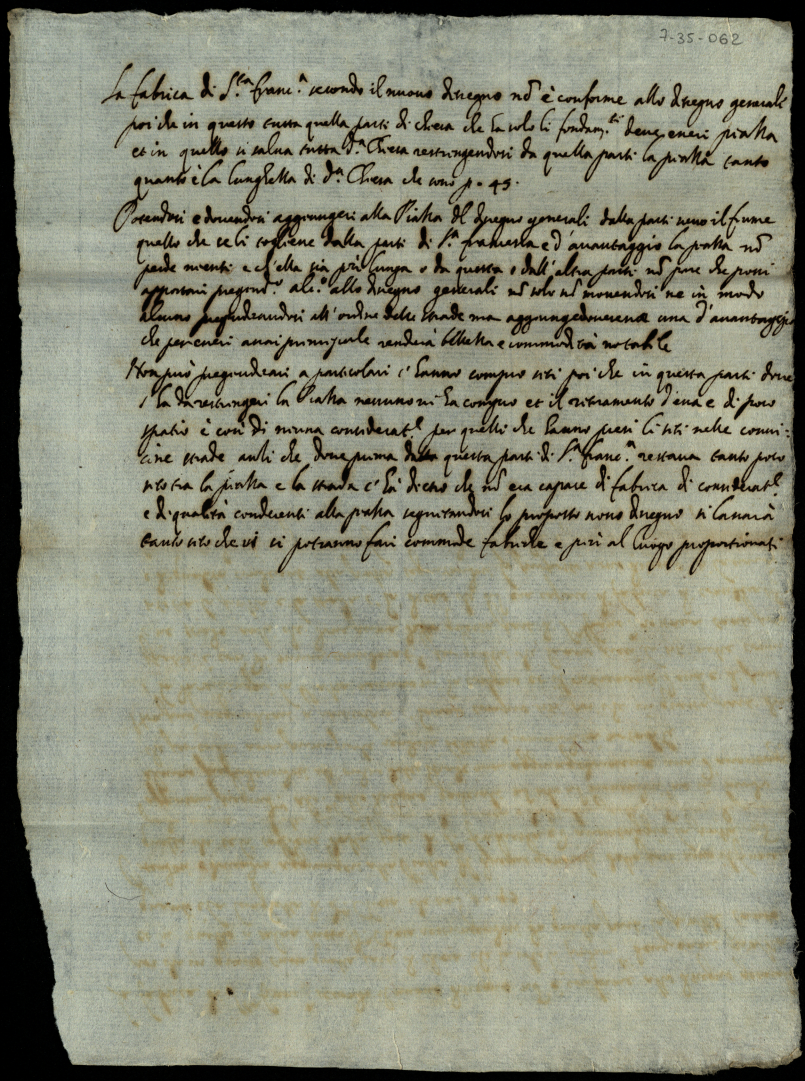 7-35-062
La fabrica di S.ta Franc.a secondo il nuovo disegno nō è conforme allo disegno generali
poi che in questo tutta quella parti di chiesa che ha solo li fondam.ti deve eneri piazza
et in quello si salva tutta d.a Chiesa restringendosi da quella parti la piazza tanto
quanto è la lunghezza di d.a Chiesa che sono p. 45.
Potendosi e dovendosi aggiungeri alla Piazza del disegno generali dalla parti verso il fiume
quello che se li togliene dalla parti di S.a Francesca e d'avantaggio la piazza nō
perde nienti e ch'ella sia più lunga o da questa o dall'altra parti nō pare che possi
apportari pregiud.o alc.o allo disegno generali nō solo nō movendosi ne in modo
alcuno pregiudicandosi all'ordine delle strade ma aggiungendovene una d'avantaggio
che per eneri assai principale renderà bellezza e commodità notabile
Non può pregiudicari a particolari c'hanno compro siti poi che in questa parti dove
s'ha da restringeri la Piazza nessuno ni ha compro et il ritiramento d'essa e di poco
spatio è così di niuna considerat.e per quelli che hanno presi li siti nelle convi:
cine strade anzi che dove prima da questa parti di S.a Franc.a restava tanto poco
sito tra la piazza e la strada c'ha dietro che nō era capace di fabrica di considerat.e
e di qualità condecenti alla piazza seguitandosi lo proposto novo disegno si lassarà
tanto sito che vi si potranno fari commode fabriche e più al luogo proportionati